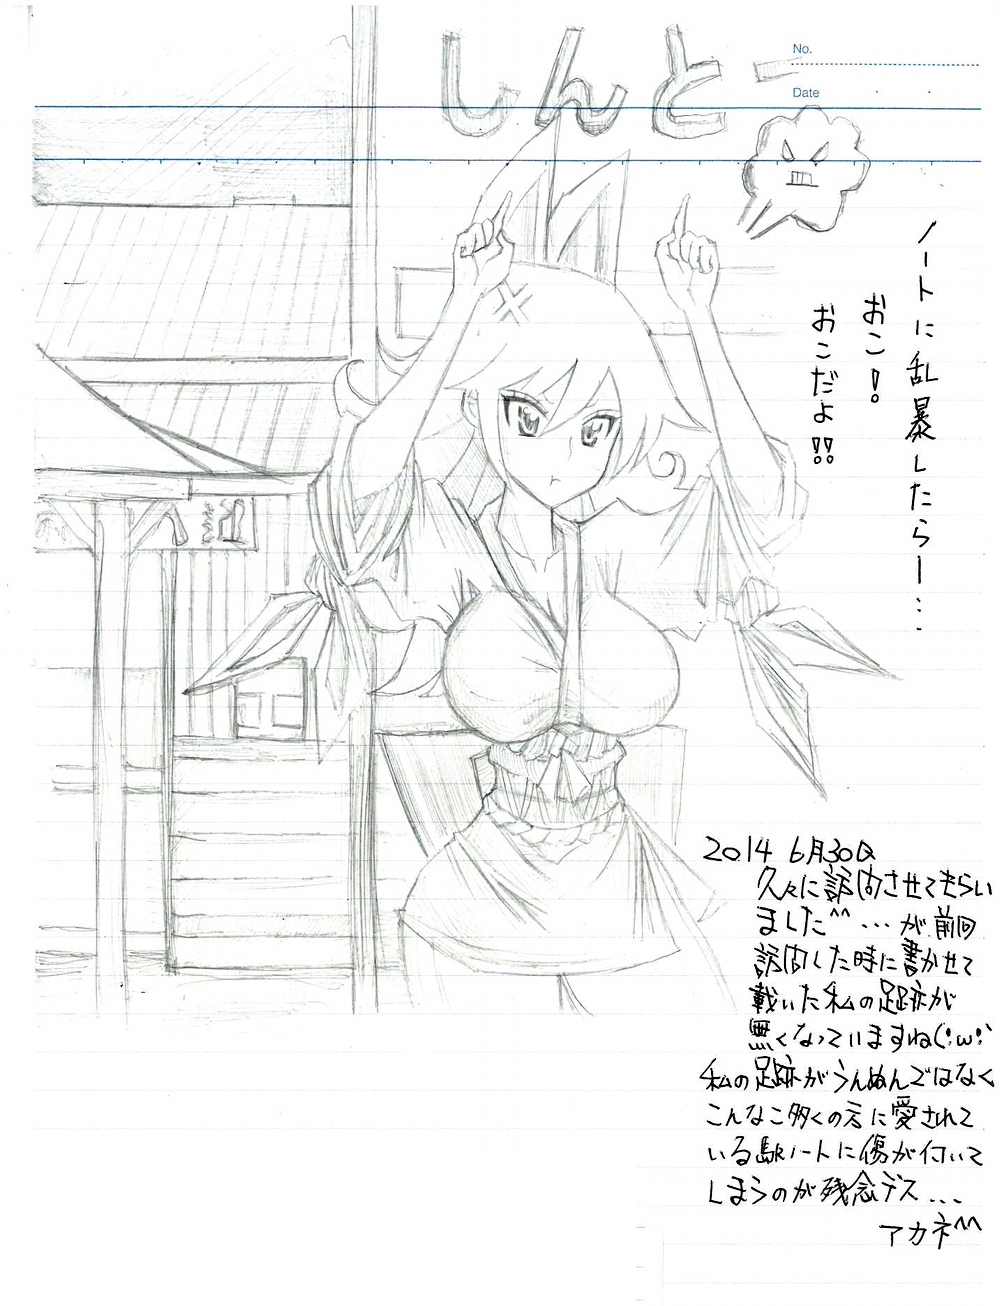 しんとー
No.
Date
ノートに乱暴したらー…
おこ!
おこだよ!!
2014 6月30日
久々に訪問させてもらい
ました^^…が前回
訪問した時に書かせて
載いた私の足跡が
無くなっていますね(´;ω;`
私の足跡がうんぬんではなく
こんなこ多くの方に愛されて
いる駅ノートに傷が付いて
しまうのが残念デス...
アカネ^^